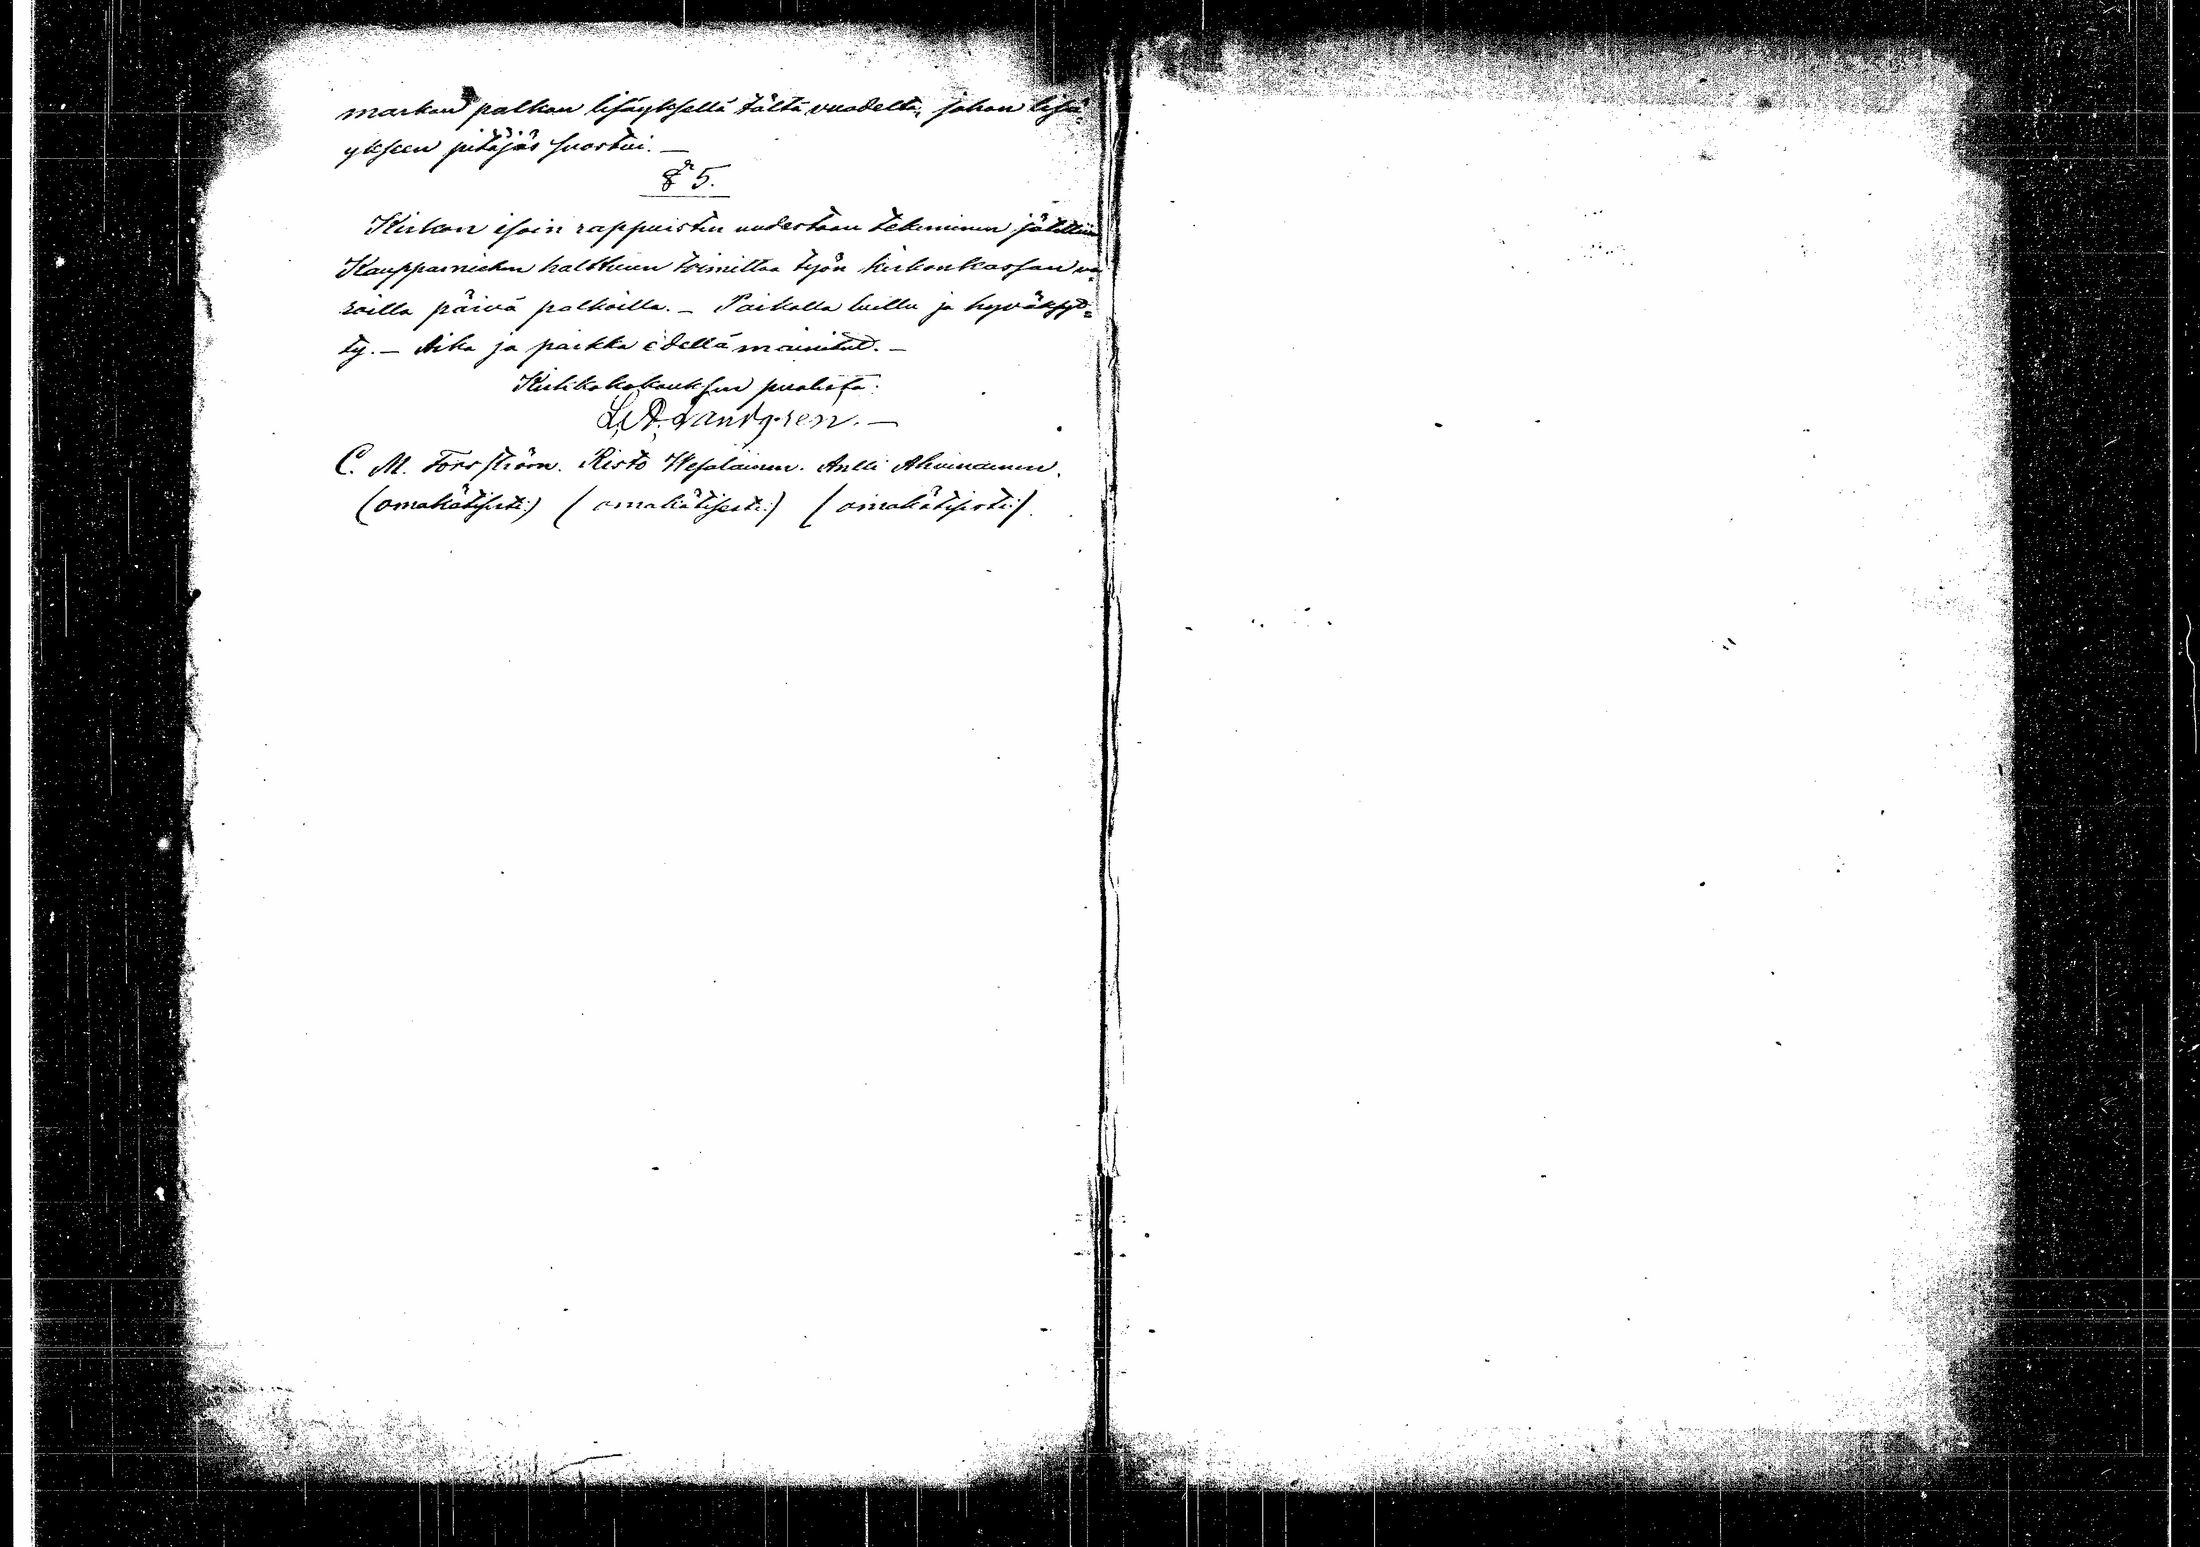 markan palkan lisäyksellä tältä vuodelta, johon lisä-
ykseen pitäjäs suostui. —
§ 5.
Kirkon isoin rappuisten uudestaan tekeminen jätettiin
Kauppamiehen halttuun toimittaa työn kirkonkassan va-
roilla päivä palkoilla. — Paikalla luettu ja hyväksyt-
ty. — Aika ja paikka edellä mainitut. —
Kirkkokokouksen puolesta:
L. A. Landgren. —
C. M. Forsström. Risto Wesalainen. Antti Ahvinainen.
(omakätisesti:) (omakätisesti:) (omakätisesti:)